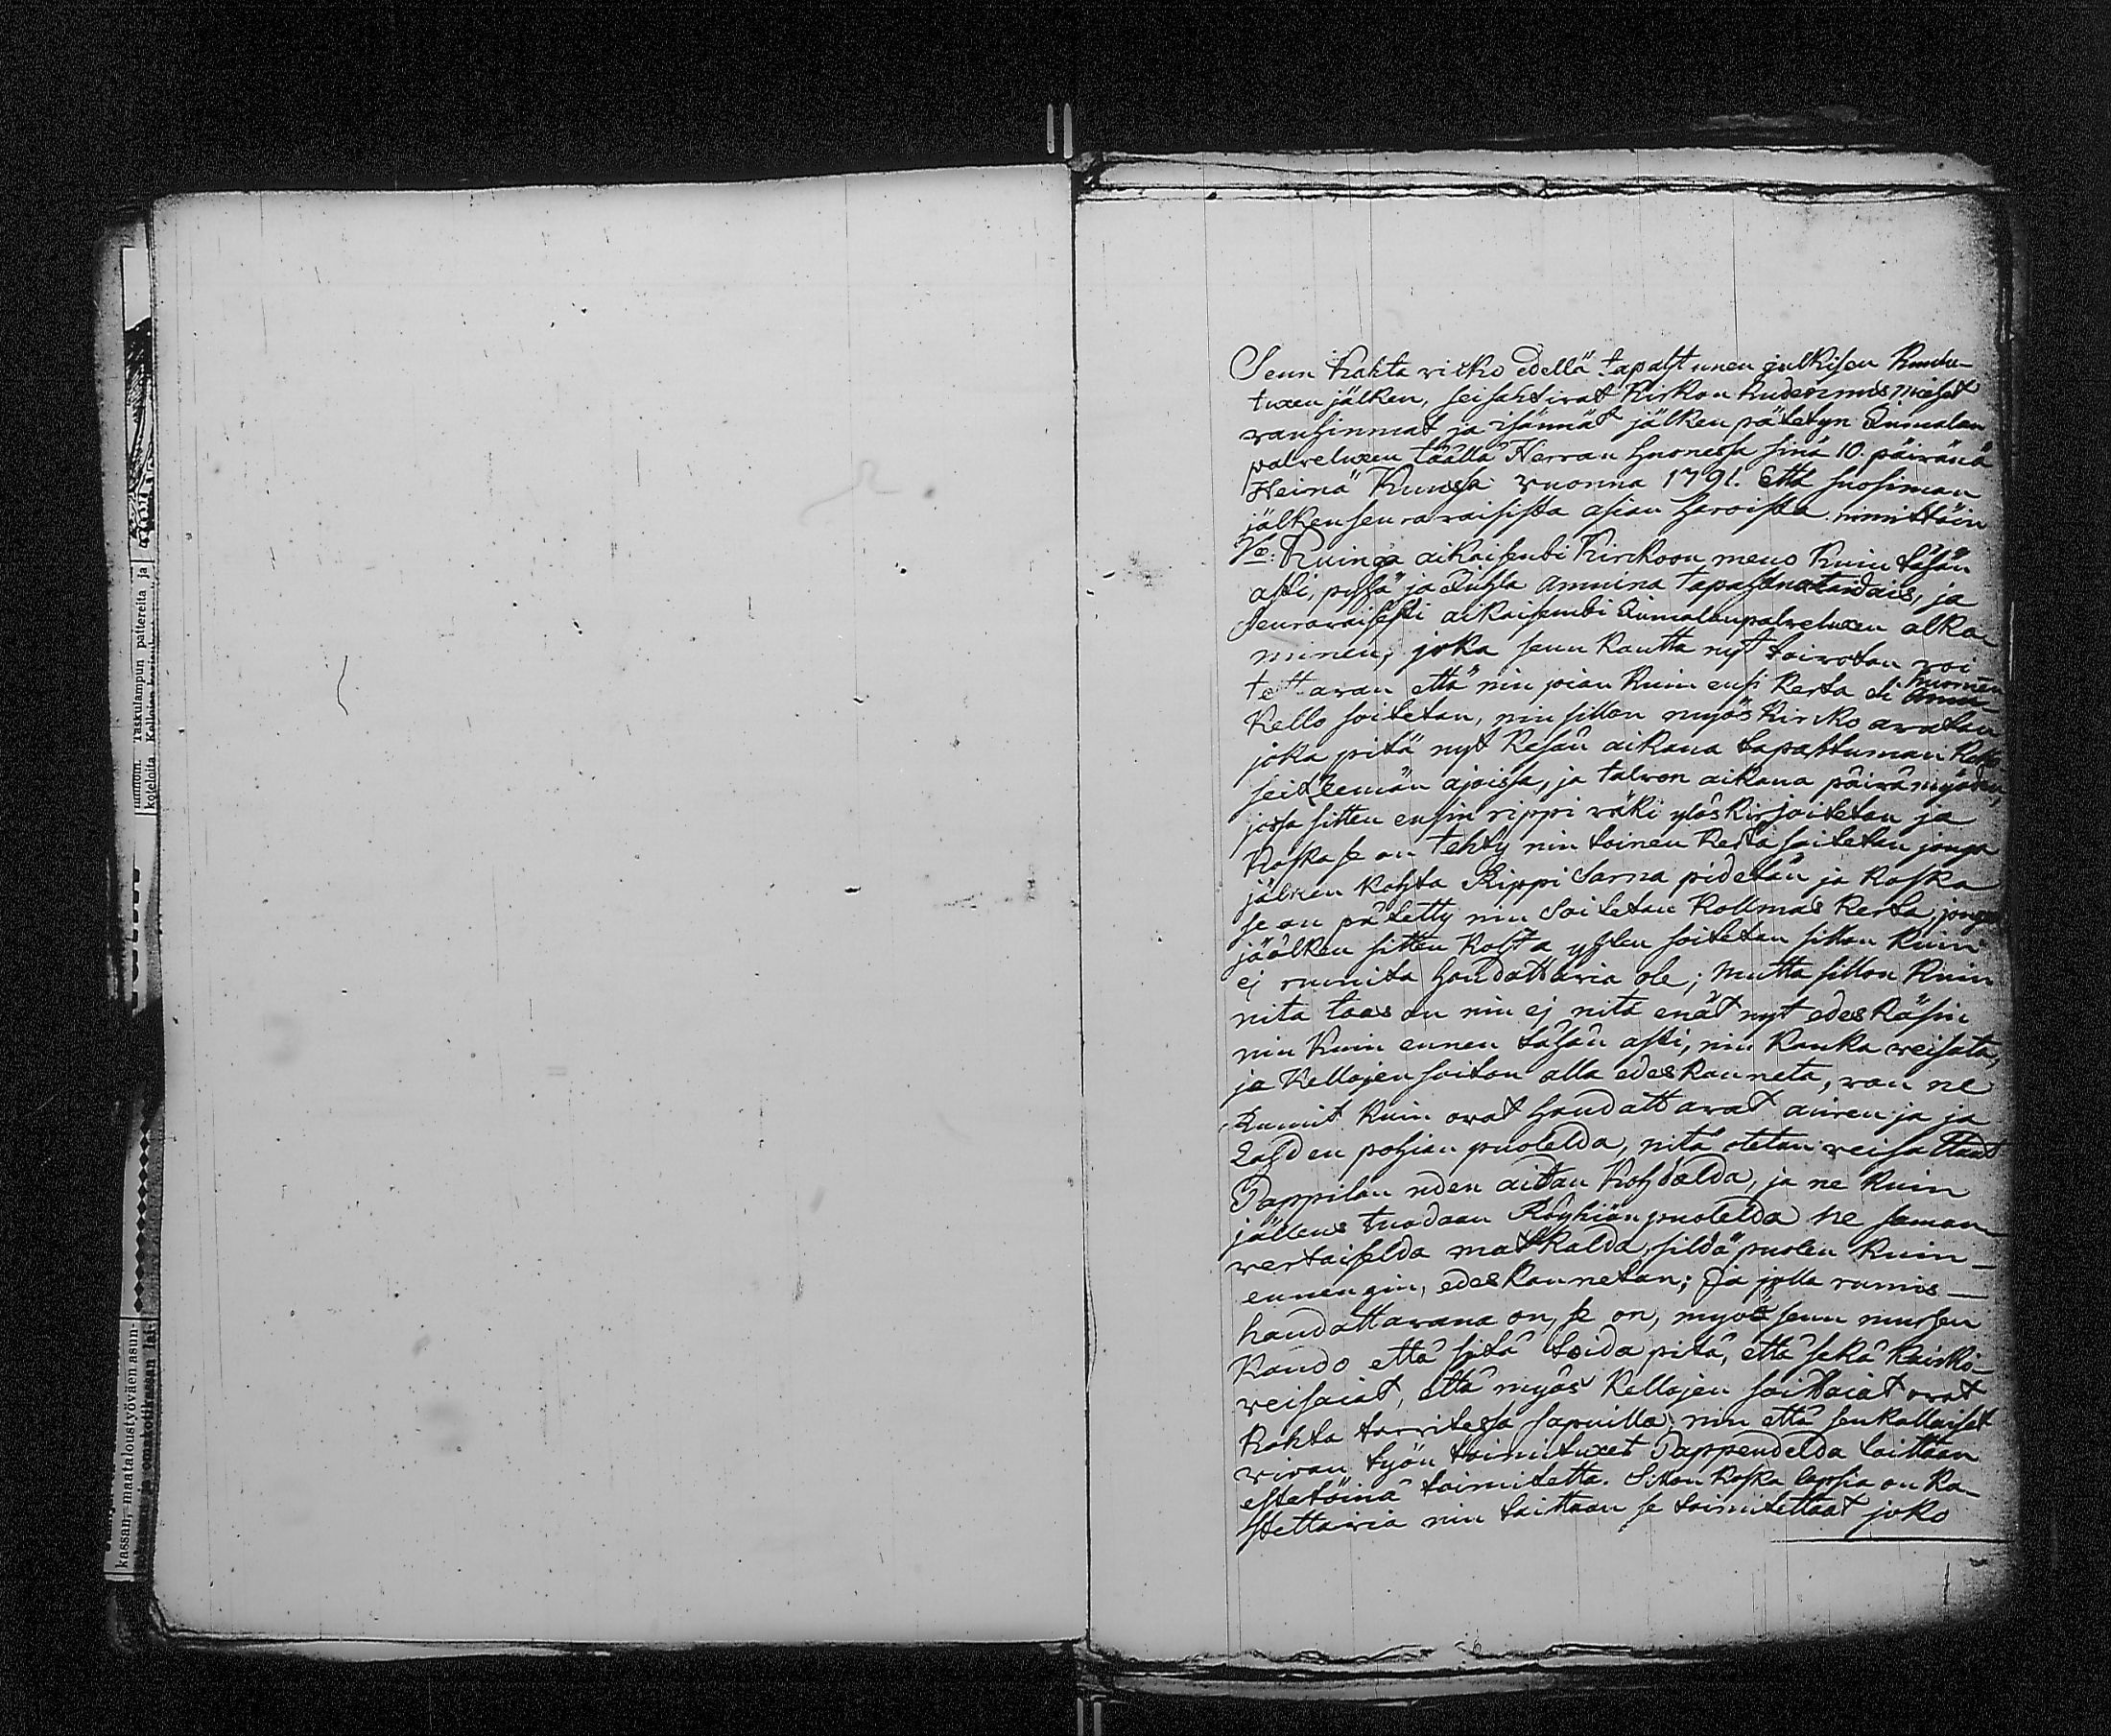 Senn kahta wicko edellä tapahtunen julkisen Kuulu-
tuxen jälken, seisahtivat Kirkon Kudesimus miehet
wanhimmat ja isännät jälken pätetyn Jumalan
palveluxen täällä Herran huonessa sinä 10. päivänä
Heinä Kuussa wuonna 1791. Että suosiman
jälken seurawaisista asian haroista nimittäin
1o. Kuinga aikaisembi Kirckoon meno kuin tähän
asti, pyhä ja Juhla amuina tapahtua taidais, ja
Seurawaisesti aikaisembi Jumalanpalveluxen alka-
minen, joka senn kautta nyt toivotan woi
tettawan että nin pian kuin ensi kerta eli huomen
Kello soitetan, nin sillon myös Kircko awatan
joka pitä nyt kesän aikana tapahtuman Kello
seitzemän ajoissa, ja talwen aikana päivä myöden,
jossa sitten ensin rippi wäki ylöskirjoitetan ja
Koska se on tehty nin toinen kerta soitetan jonga
jälken kohta Rippi Sarna pidetän ja koska
se on pätetty nin Soitetan Kollmas kerta, jonga
jäälken sitten kohta yhten soitetan sillon kuin
ej rumita haudattavia ole; mutta sillon kuin
nita taas on nin ej nitä enät nyt edeskäsin
nin kuin ennen tähän asti, nin kauka weisata,
ja Kellojen soiton alla edeskanneta, wan ne
Rumit kuin owat haudattawat auren ja ja
Lahden pohjan puolelda, nitä otetan weisattaat
Pappilan uden aitan kohdalda, ja ne kuin
jällens tuodaan Röyhiön puolelda ne saman
wertaiselda matkalda, sildä puolen kuin
ennengin, edeskannetan; Ja jolla rumis
haudattawana on, se on, myös senn murhen
kando että sitä taida pitä, että sekä kuicko
weisaiat, että myös Kellojen soittaiat owat
kohta tarwitessa sapuilla, nin että senkallaiset
wiran työn toimituxet Pappendelda taittaan
estetöinä toimitetta. Sillon koska lapsia on ka-
stettawia nin taittaan se toimitettaat joko
kassan, maataloustyöväen asun-
koteloita.
Taskulampun pattereita ja